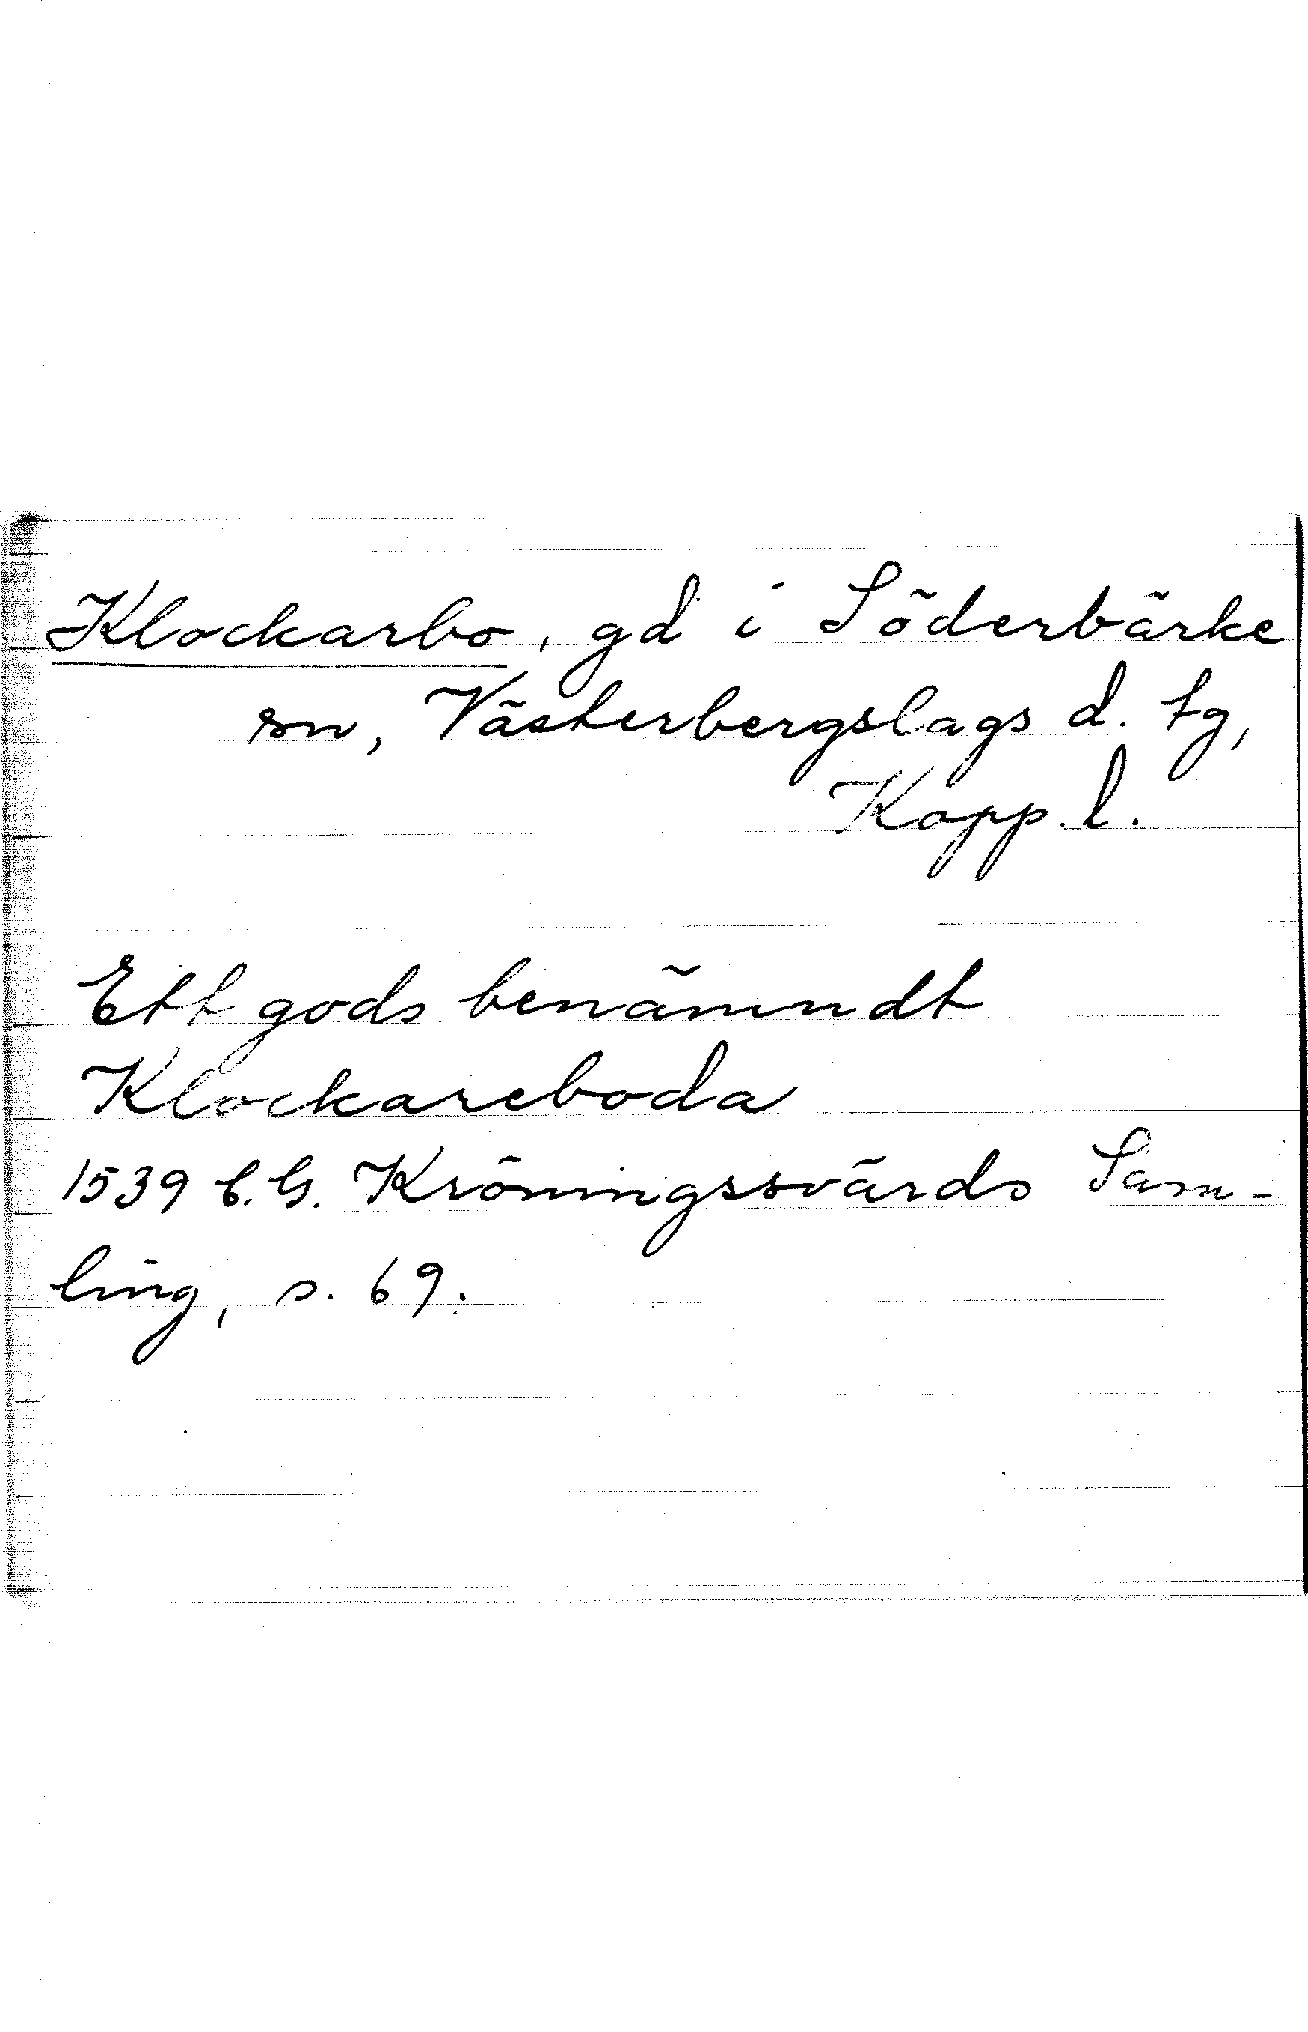 Klockarbo, gd i Söderbärke
sn, Västerbergslags d. tg,
Kopp. l.
Ett gods benämndt
Klockareboda
1539 C. G. Kröningssvärds Sam-
ling, s. 69.